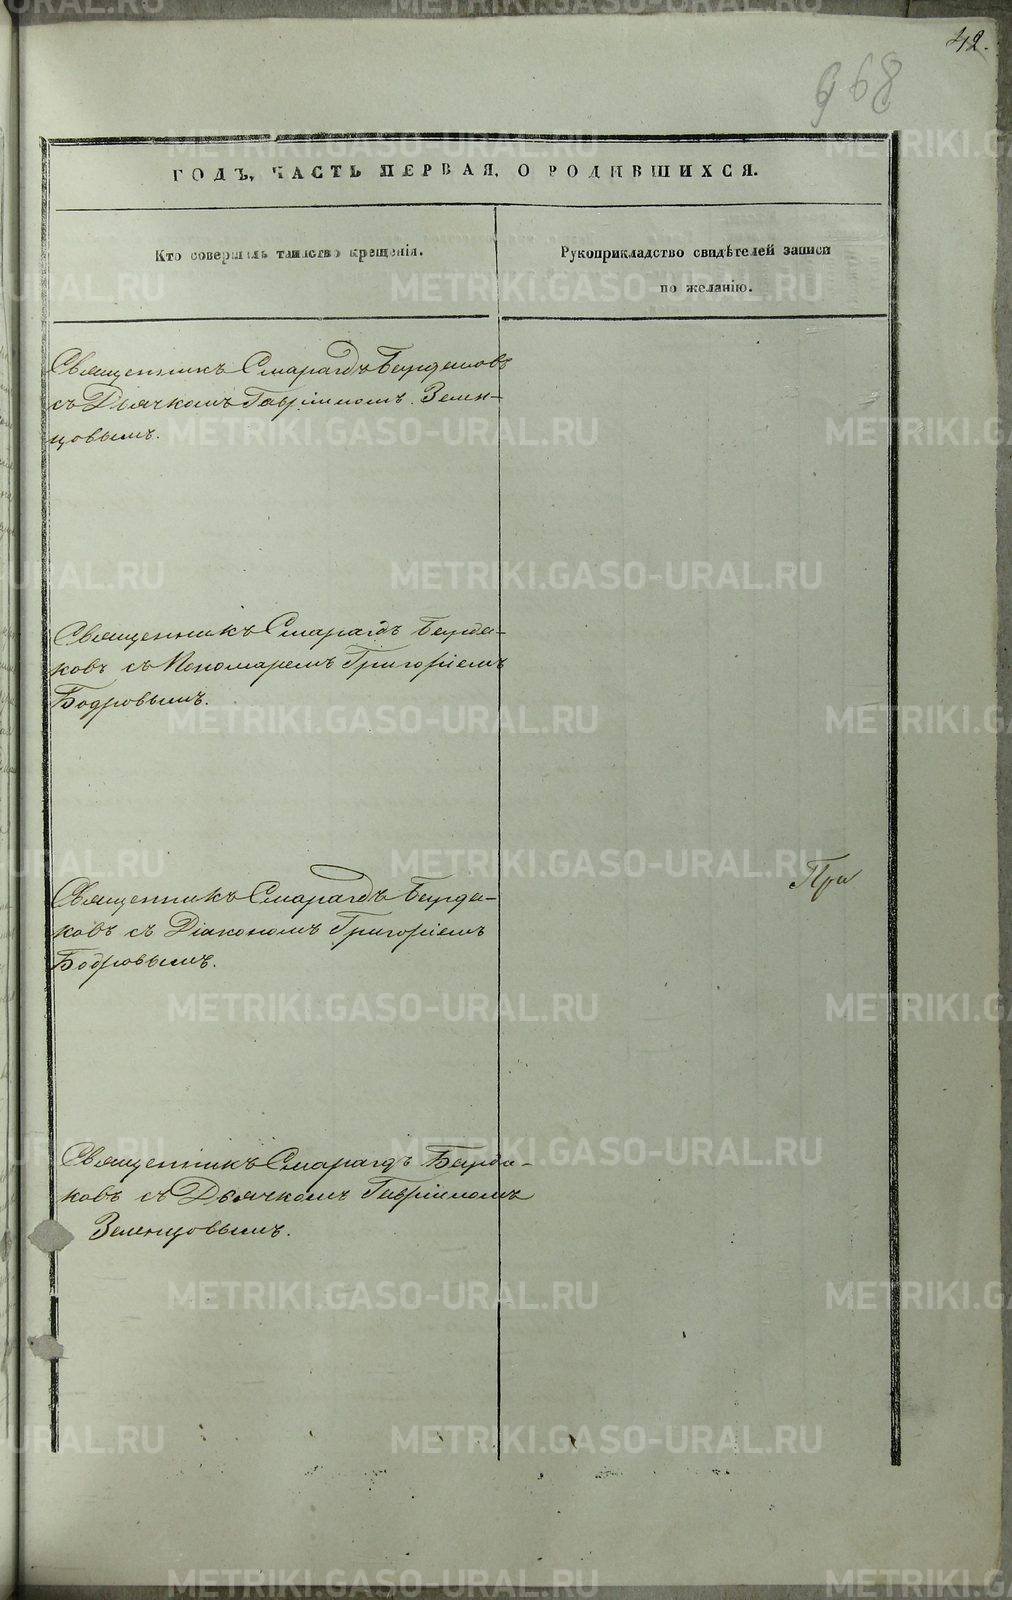 42.
968
ГОДЪ, ЧАСТЬ ПЕРВАЯ, О РОДИВШИХСЯ.
Кто совершилъ таинство крещенія.
Рукоприкладство свидѣтелей записи
по желанію.
Священникъ Смарагдъ Бурдаковъ
съ Дьячкомъ Гавріиломъ Зелен-
цовымъ.
Священникъ Смарагдъ Бурда-
ковъ съ Пономаремъ Григоріемъ
Бодровымъ.
Священникъ Смарагдъ Бурда-
ковъ съ Діакономъ Григоріемъ
Бодровымъ.
При
Священникъ Смарагдъ Бурда-
ковъ съ Дьячкомъ Гавріиломъ
Зеленцовымъ.
METRIKI.GASO-URAL.RU